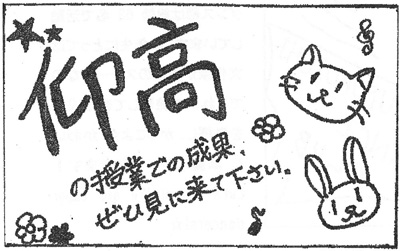 仰高
の授業での成果、
ぜひ見に来て下さい。